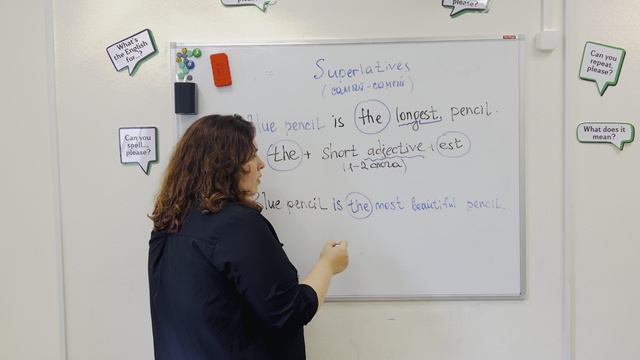 What's the English for...?
Can you spell... please?
please?
Can you repeat, please?
What does it mean?
Superlatives
(самый-самый)
lue pencil is the longest pencil.
the + short adjective + est
(1-2 слога)
lue pencil is the most beautiful pencil.